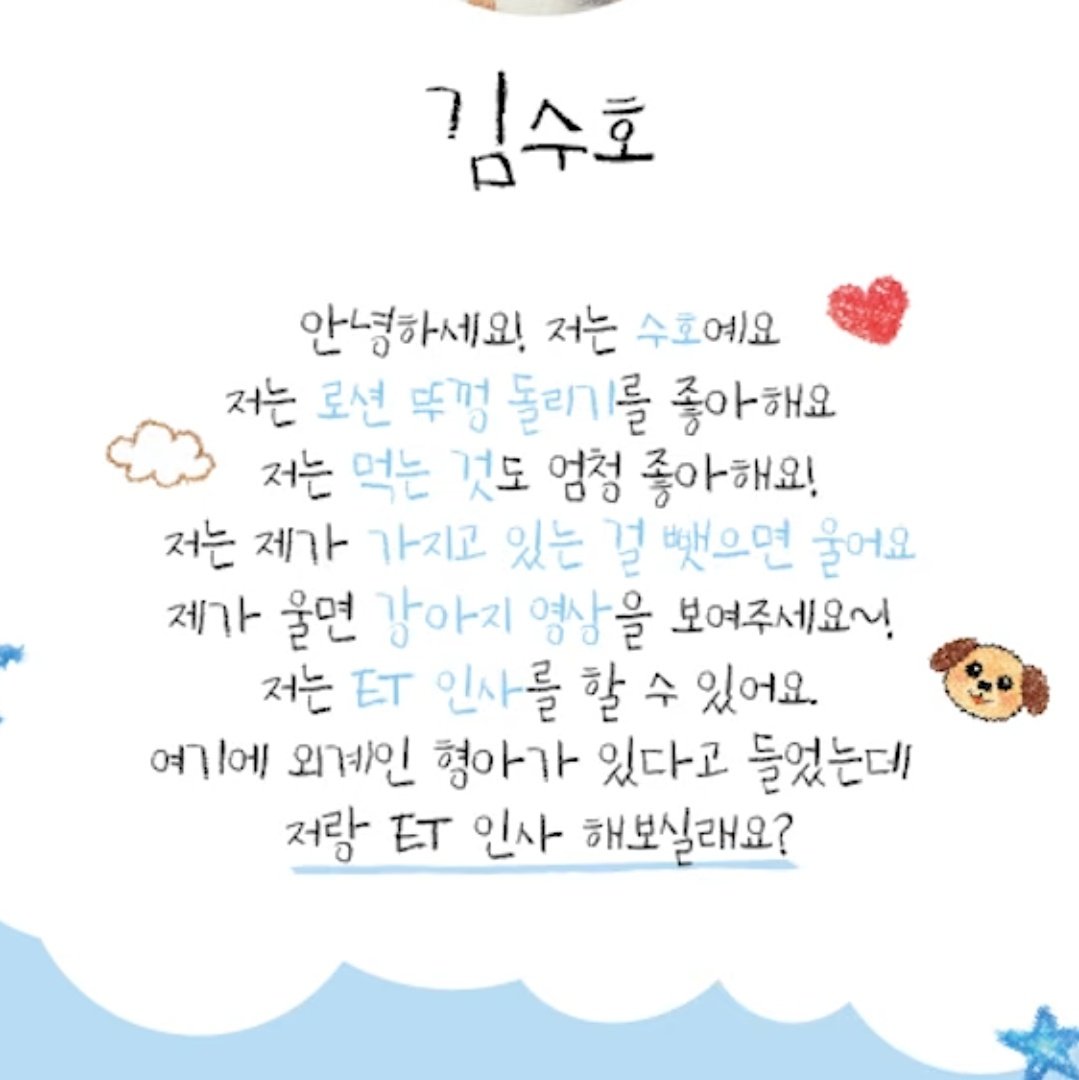 김수호
안녕하세요! 저는 수호예요
저는 로션 뚜껑 돌리기를 좋아해요
저는 먹는 것도 엄청 좋아해요!
저는 제가 가지고 있는 걸 뺏으면 울어요
제가 울면 강아지 영상을 보여주세요~!
저는 ET 인사를 할 수 있어요.
여기에 외계인 형아가 있다고 들었는데
저랑 ET 인사 해보실래요?